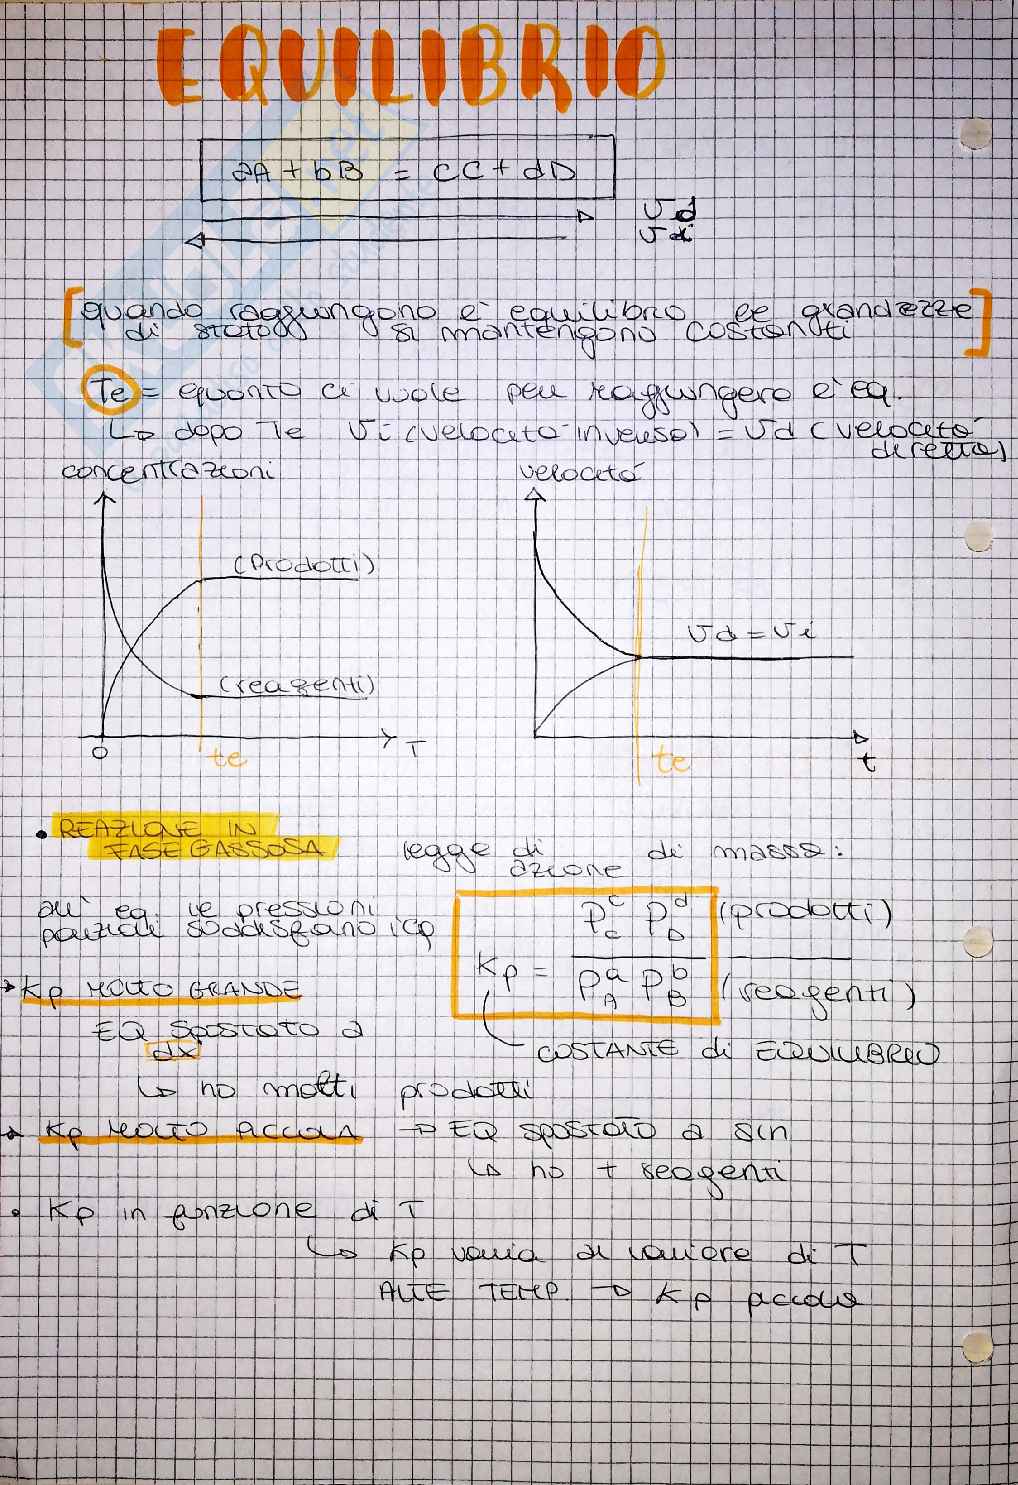 EQUILIBRIO
aA + bB = cC + dD
vd
vi
[quando raggiungono l'equilibrio le grandezze
di stato si mantengono costanti]
Te = quanto ci vuole per raggiungere l'eq.
↳ dopo Te vi (velocità inversa) = vd (velocità
diretta)
concentrazioni
velocità
(Prodotti)
vd = vi
(reagenti)
O
te
T
te
t
• REAZIONE IN
FASE GASSOSA
legge di azione di massa:
all' eq. le pressioni
parziali soddisfano
Kp = P_C^c P_D^d / P_A^a P_B^b
(prodotti)
(reagenti)
COSTANTE di EQUILIBRIO
→ Kp MOLTO GRANDE
EQ SPOSTATO a
dx
↳ ho molti prodotti
→ Kp MOLTO PICCOLA → EQ SPOSTATO a sin
↳ ho + reagenti
• Kp in funzione di T
↳ Kp varia al variare di T
ALTE TEMP. → Kp piccola